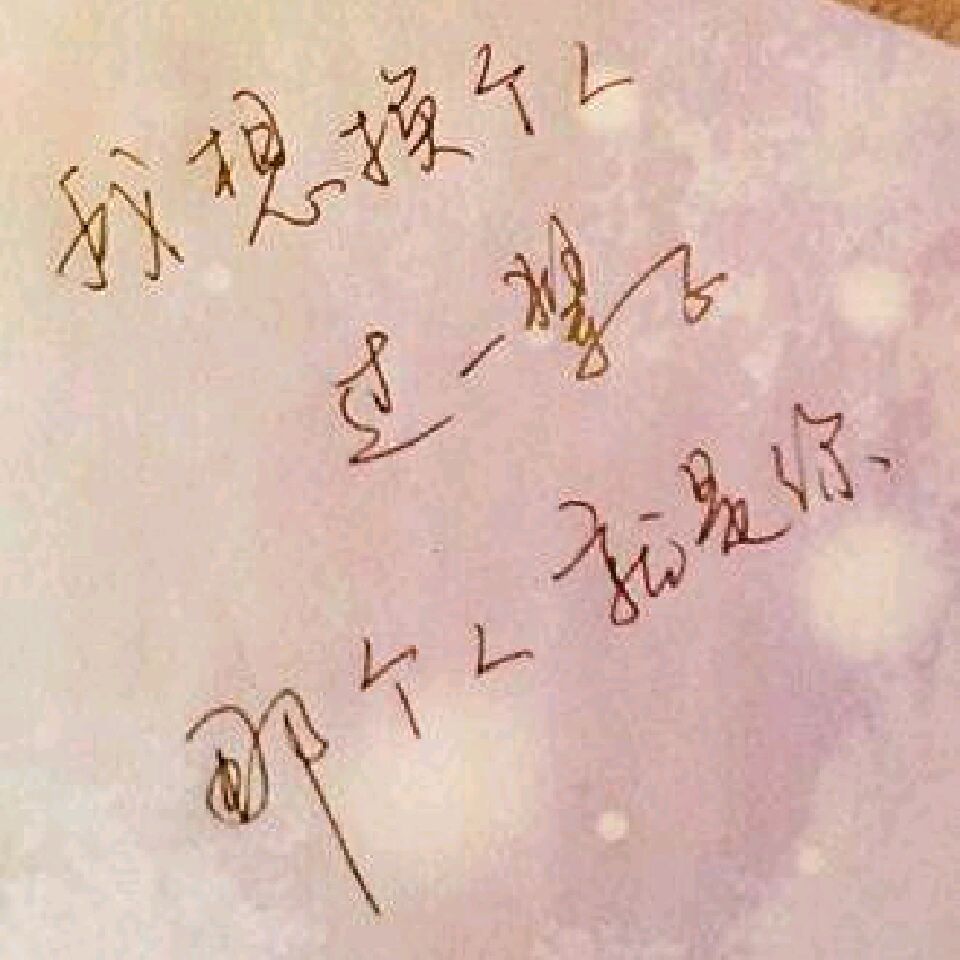 我想换个人
过一辈子
那个人就是你.